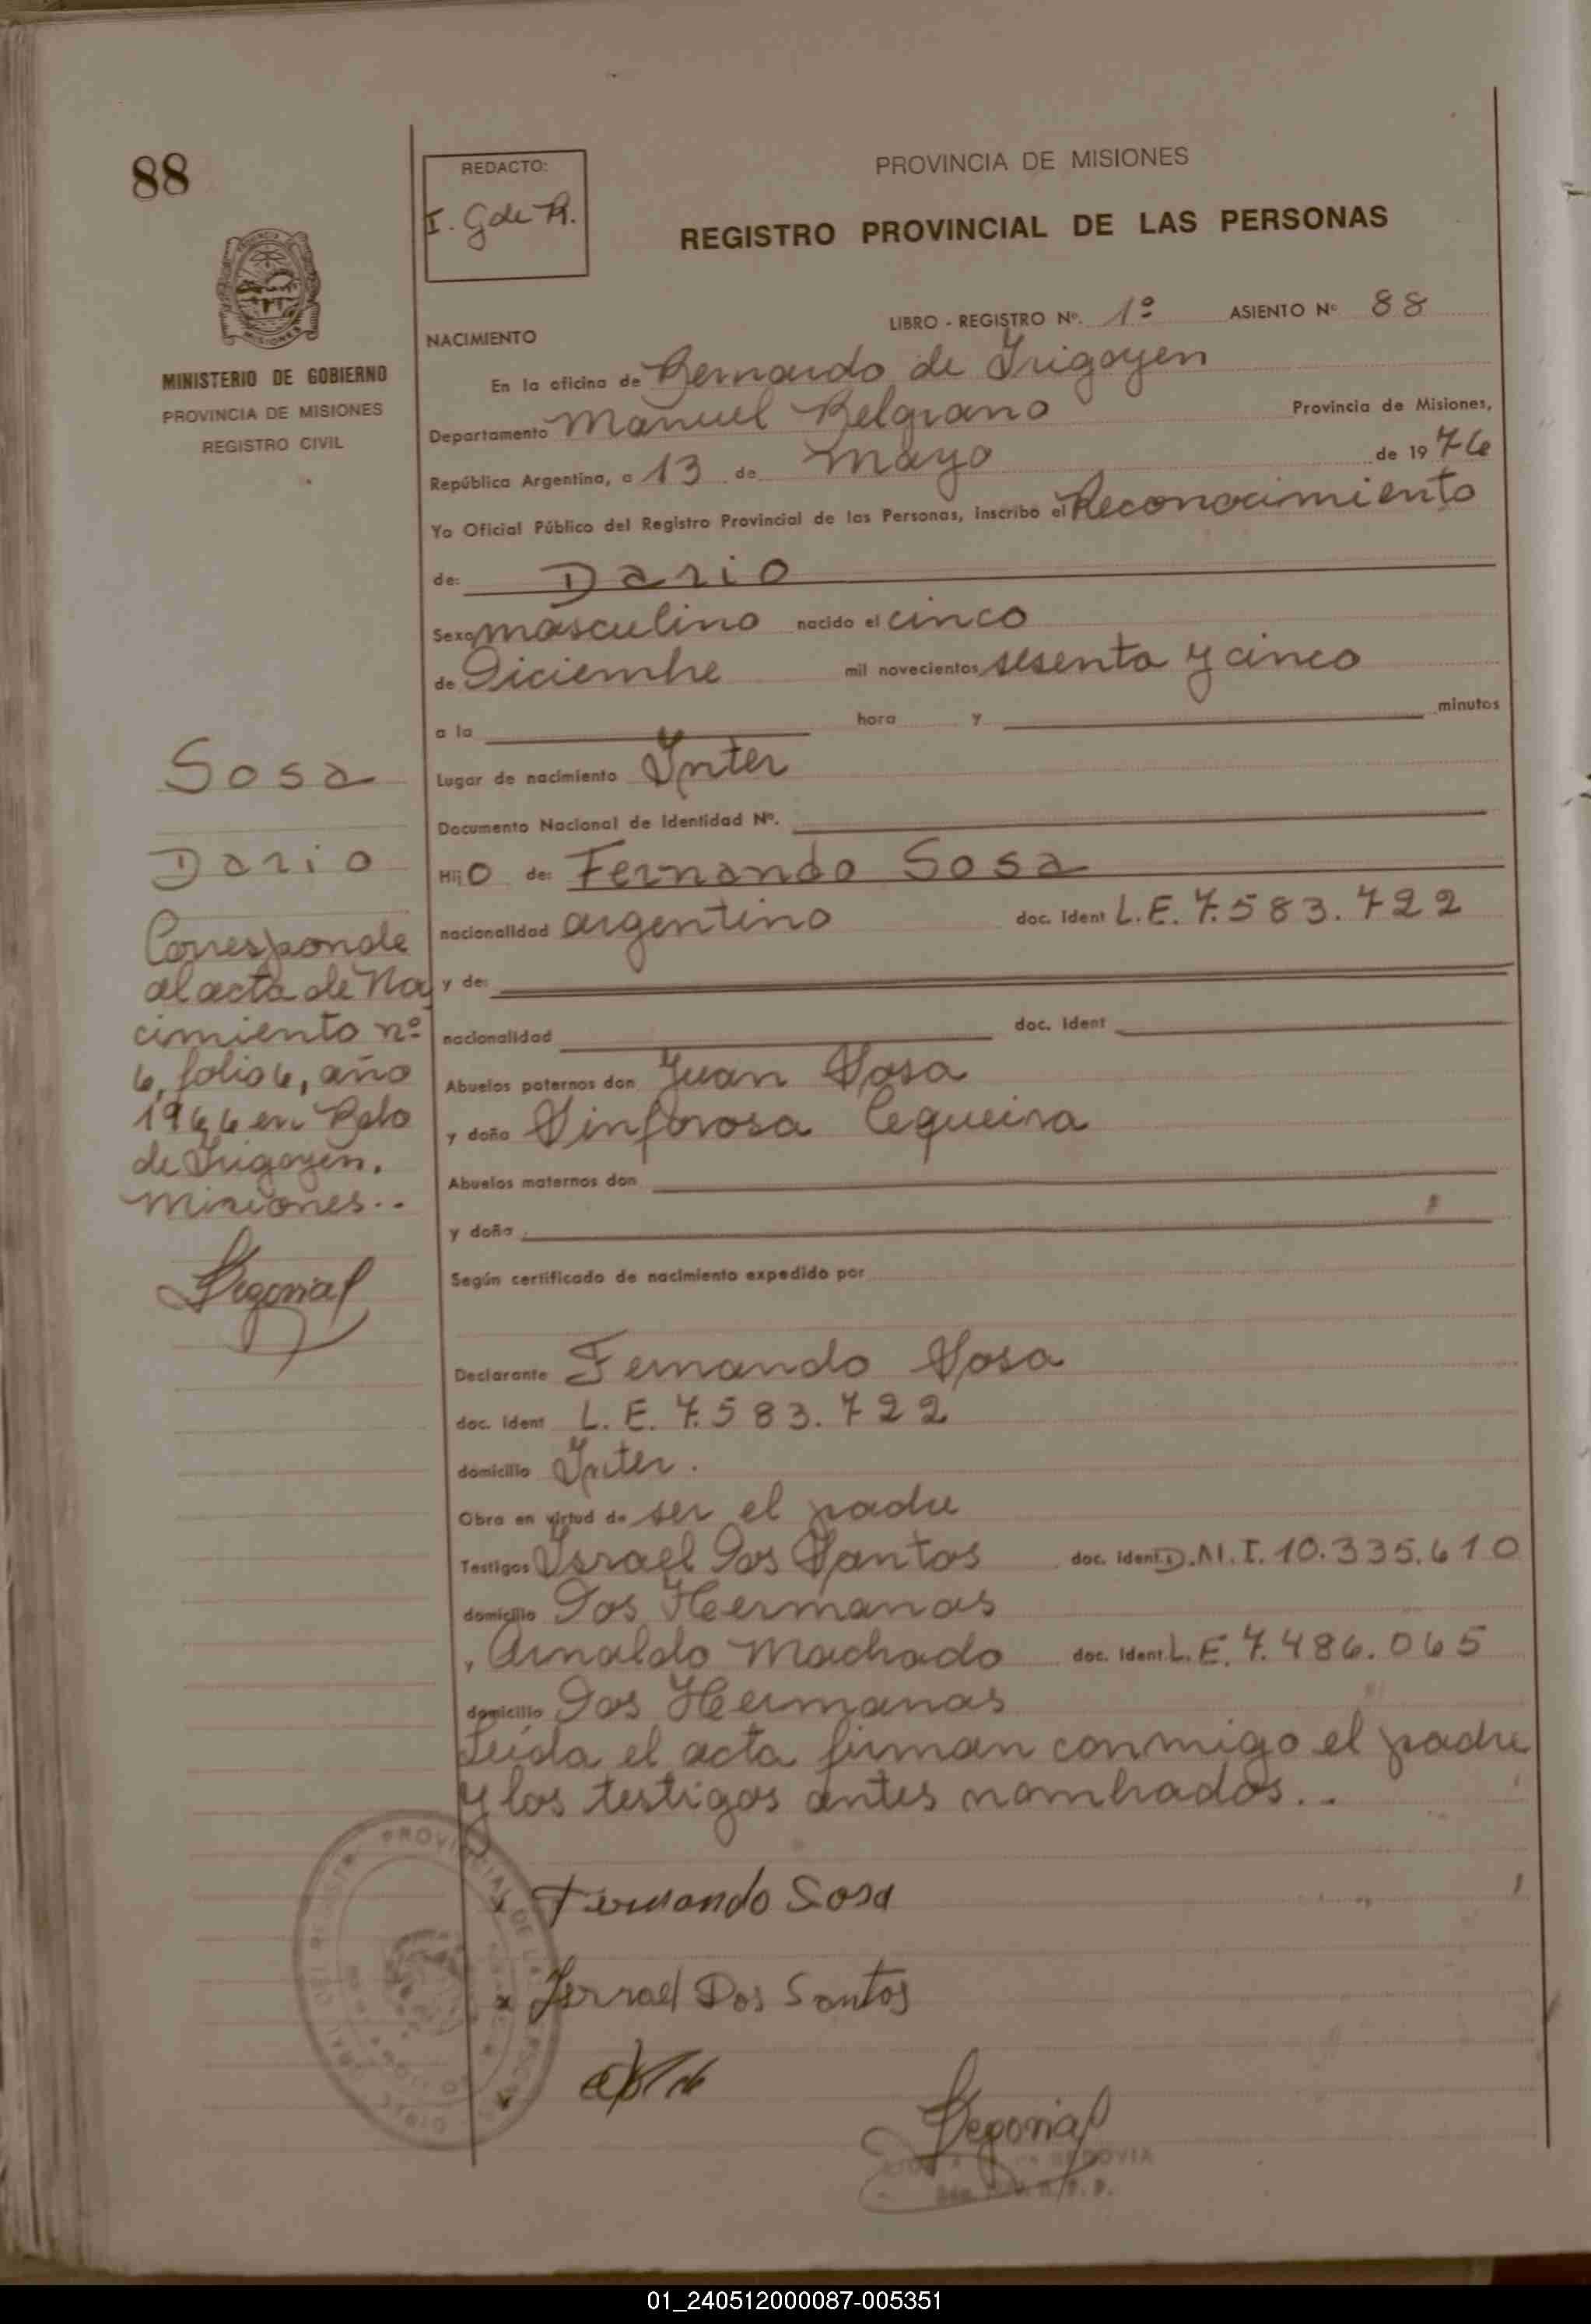 88
REDACTO:
I. G de R.
PROVINCIA DE MISIONES
REGISTRO PROVINCIAL DE LAS PERSONAS
MINISTERIO DE GOBIERNO
PROVINCIA DE MISIONES
REGISTRO CIVIL
LIBRO - REGISTRO Nº. 1º ASIENTO Nº 88
NACIMIENTO
En la oficina de Bernardo de Irigoyen
Departamento Manuel Belgrano Provincia de Misiones,
República Argentina, a 13 de mayo de 1976
Yo Oficial Público del Registro Provincial de las Personas, inscribo el Reconocimiento
de: Dario
Sexo masculino nacido el cinco
de Diciembre mil novecientos sesenta y cinco
a la hora y minutos
Lugar de nacimiento Inter
Documento Nacional de Identidad Nº.
Hijo de: Fernando Sosa
nacionalidad argentino doc. Ident L.E. 7.583.722
y de:
nacionalidad doc. Ident
Abuelos paternos don Juan Sosa
y doña Sinforosa Cequeira
Abuelos maternos don
y doña
Según certificado de nacimiento expedido por
Declarante Fernando Sosa
doc. Ident L.E. 7.583.722
domicilio Inter.
Obra en virtud de ser el padre
Testigos Israel Dos Santos doc. Ident D.N.I. 10.335.610
domicilio Dos Hermanas
, Arnaldo Machado doc. Ident L.E. 7.486.065
domicilio Dos Hermanas
Leída el acta firman conmigo el padre
y los testigos antes nombrados..
Sosa
Dario
Corresponde
al acta de Na
cimiento nº
6, folio 6, año
1966 en Bdo
de Irigoyen.
Misiones..
x Fernando Sosa
x Israel Dos Santos
x
SEGOVIA
01_240512000087-005351